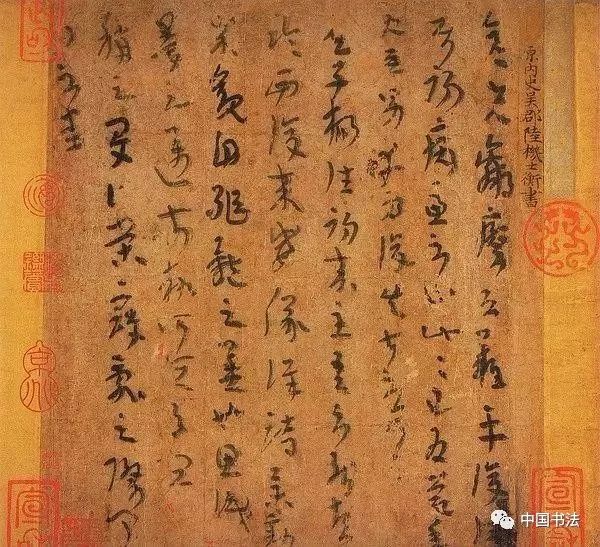 原内史吳郡陸機士衡書
彦先羸瘵恐難平復往屬
初病慮不止此此已為慶承
使唯男幸為復失前憂耳
吳子楊往初來主吾不能盡
臨西復來威儀詳跱舉動
成觀自軀體之美也思識
量之邁前執所恒有宜
稱之夏伯榮寇亂之際聞
問不悉
中国书法